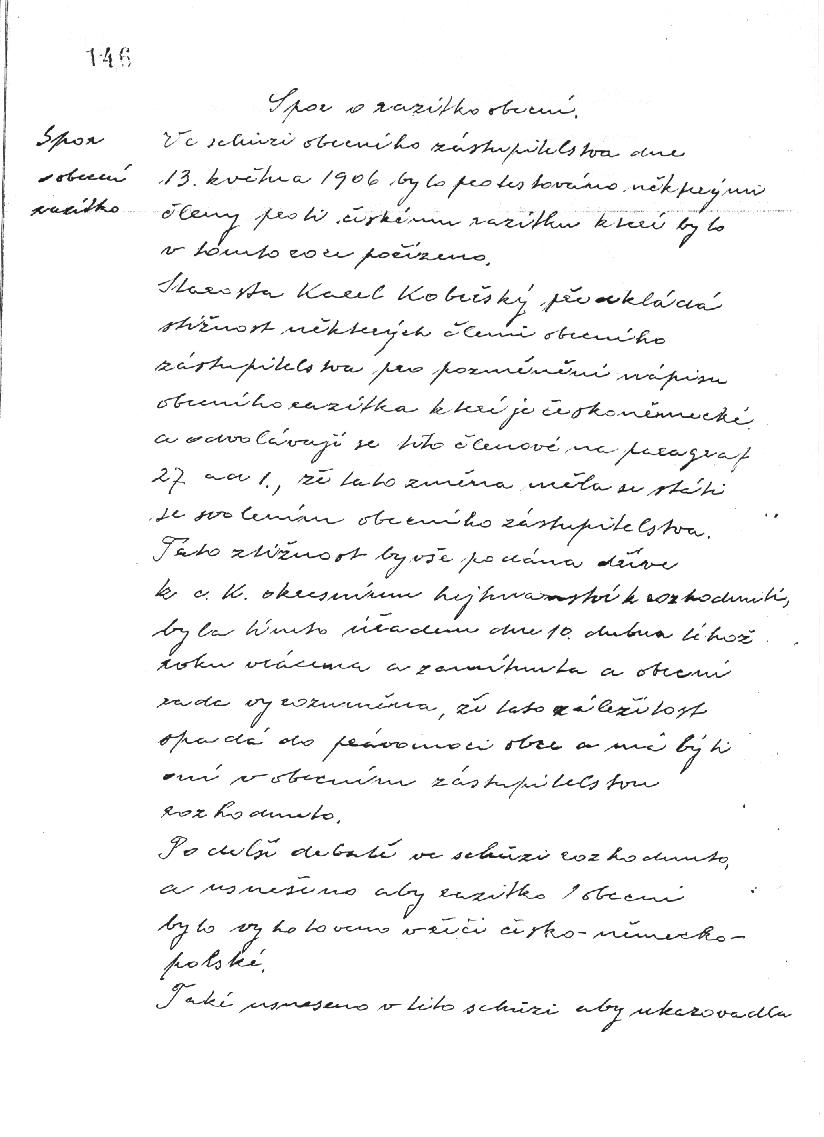 146
Spor o razítko obecní.
Spor
o obecní
razítko
Ve schůzi obecního zástupitelstva dne
13. května 1906 bylo protestováno některými
členy proti českému razítku kteréi bylo
v tomto roce pořízeno.
Starosta Karel Kobeřský předkládá
stížnost některých členů obecního
zástupitelstva pro pozměnění nápisu
obecního razítka kteréi je českoněmecké
a odvolávají se tito členové na paragraf
27 ad 1., že tato změna měla se státi
se svolením obecního zástupitelstva.
Tato ztížnost byvše podána dříve
k c. K. okresnímu hejtmanství k rozhodnutí,
byla tímto úřadem dne 10. dubna téhož
roku vrácena a zamítnuta a obecní
rada vyrozuměna, že tato záležitost
spadá do právomoci obce a má býti
oní v obecním zástupitelstvu
rozhodnuto.
Po delší debatě ve schůzi rozhodnuto,
a usnešeno aby razítko obecní
bylo vyhotoveno v řeči česko-německo-
polské.
Také usneseno v této schůzi aby ukazovadla